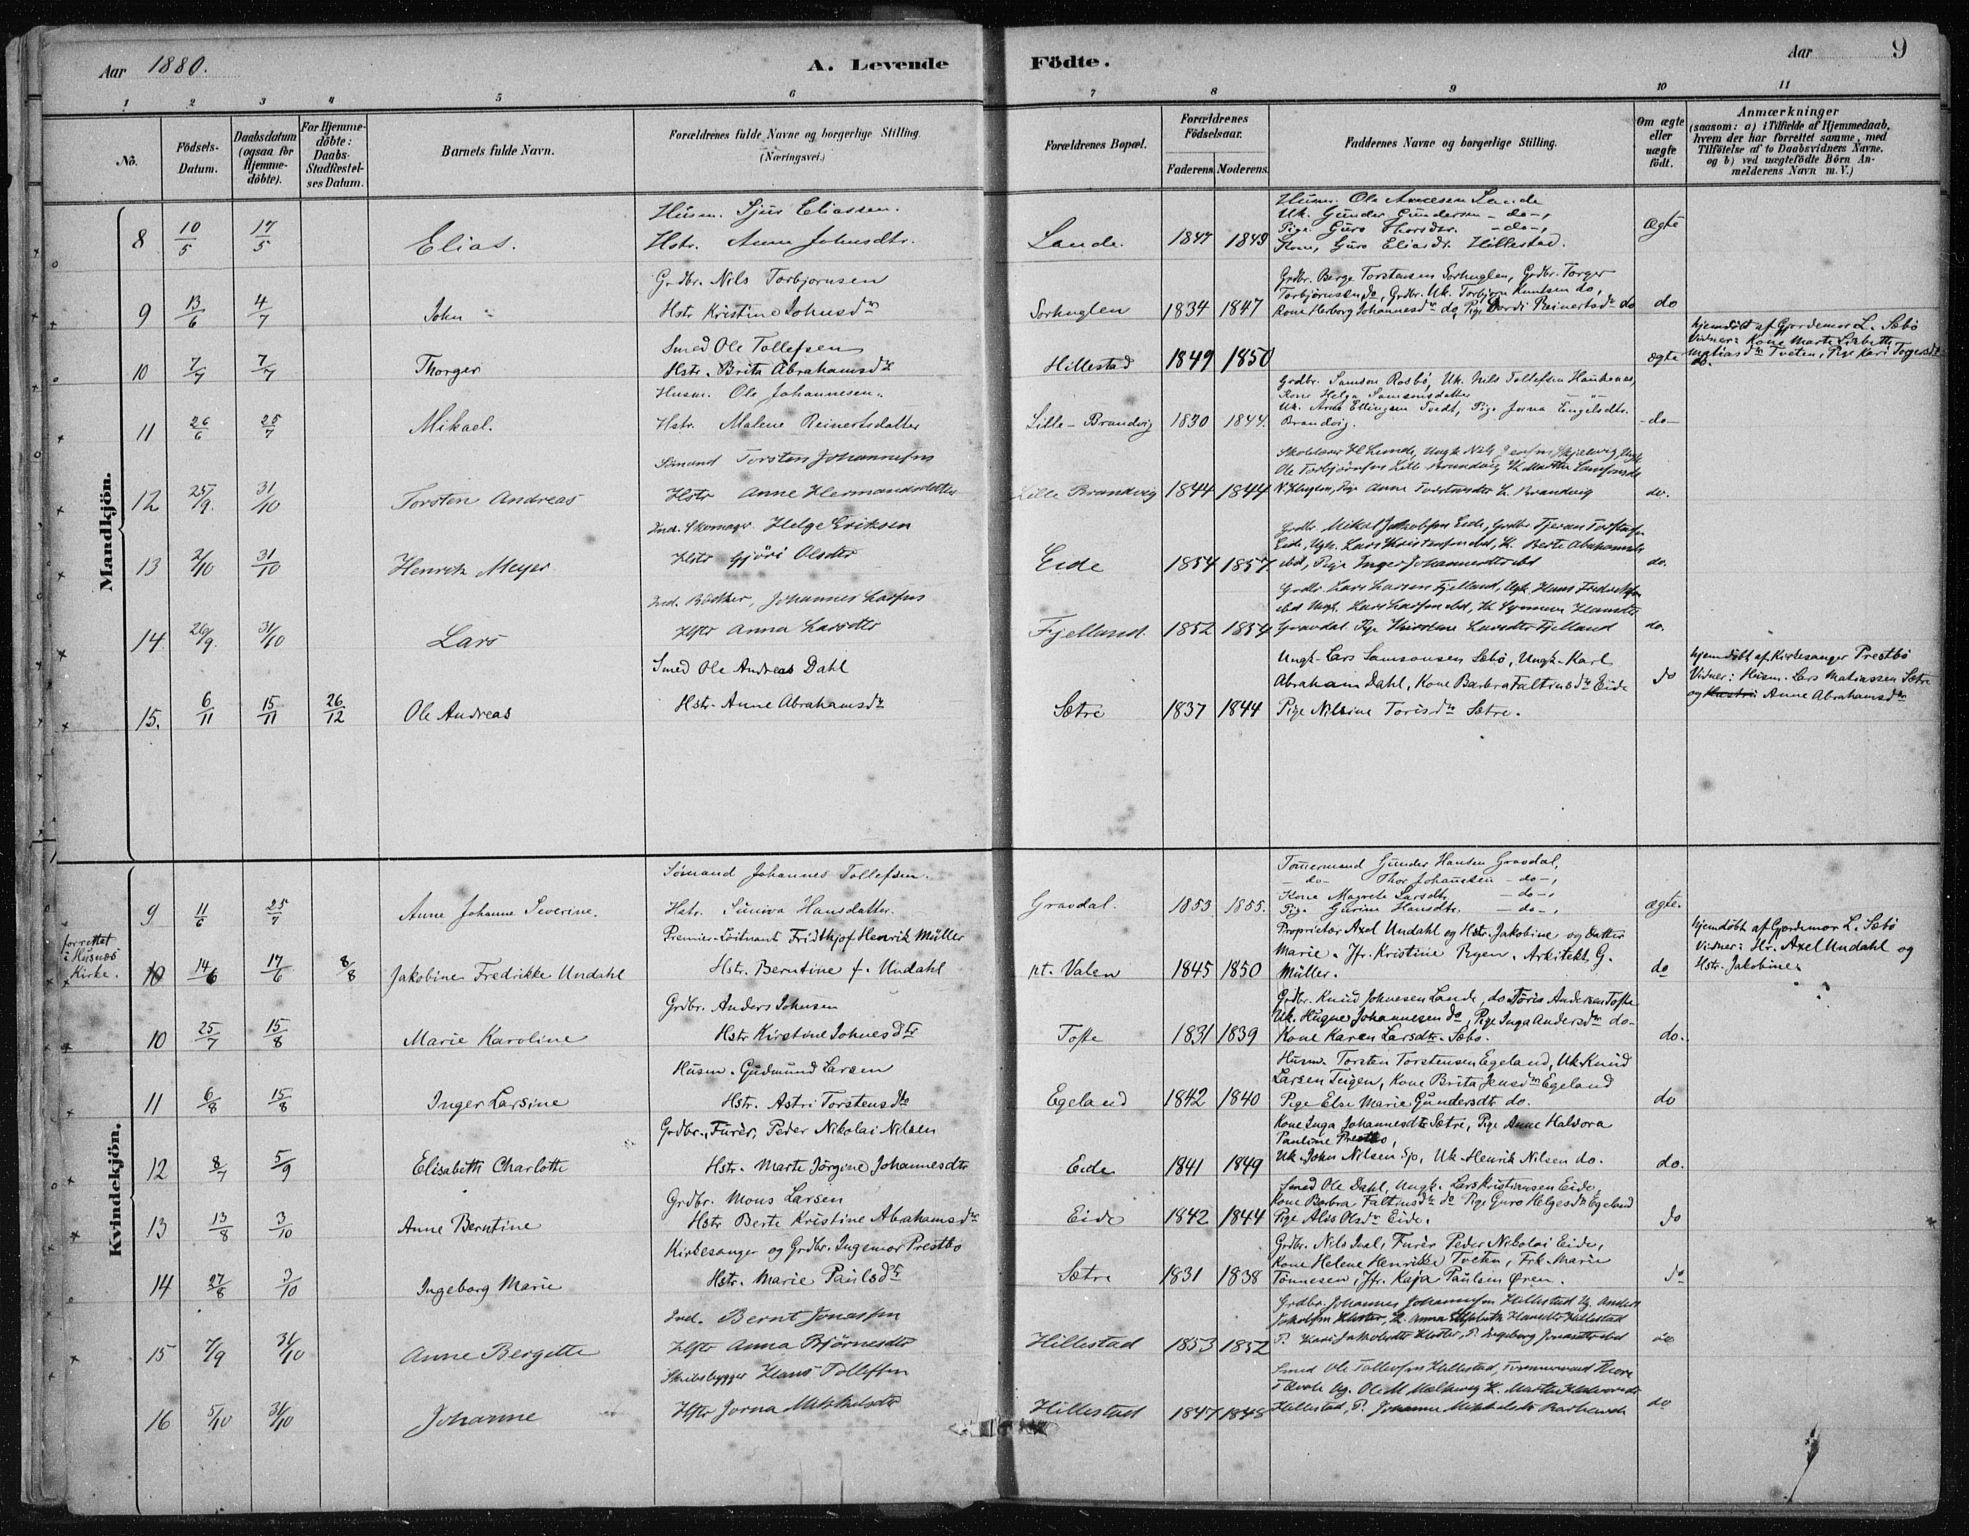 Aar 1880.
A. Levende Födte.
Aar 9
1 2 3 4 5 6 7 8 9 10 11
No.
Födsels-Datum.
Daabsdatum (ogsaa for Hjemme-döbte).
For Hjemme-döbte: Daabs-Stadfæstel-ses Datum.
Barnets fulde Navn.
Forældrenes fulde Navne og borgerlige Stilling. (Næringsvei.)
Forældrenes Bopæl.
Forældrenes Födselsaar.
Faderens. Moderens.
Faddernes Navne og borgerlige Stilling.
Om ægte eller uægte födt.
Anmærkninger
(saasom: a) i Tilfælde af Hjemmedaab,
hvem der har forrettet samme, med
Tilföielse af to Daabsvidners Navne,
og b) ved uægtefödte Börn An-
melderens Navn m. V.)
Mandkjön.
8 10/5 17/5 Elias.
Husm. Sjur Eliassen.
Hstr. Anna Johnsdtr.
Lande. 1847 1849
Husm. Ole Lande
Uk. Gunder Gundersen -do-,
Pige Guro Thorsdtr. -do-,
Kone, Guro Eliasdr. Hillestad.
Ægte
9 13/6 4/7 John
Grdbr. Nils Torbjørnsen
Hstr Kristine Johnsdtr
Sørhuglen 1834 1847
Grdbr. Børge Torstensen Sørhuglen, Grdbr. Torger
Torbjørnsen do, Grdbr. Uk. Torbjørn Knutsen do,
Kone Herborg Johannesdtr do, Pige Dordi Reinertsdtr do
do
10 7/7 7/7 Thorger
Smed Ole Tollefsen
Hstr. Brita Abrahamsdtr
Hillestad 1849 1850
ægte
hjemdöbt af Gjordemor L. Sæbö
Vidner: Kone Marte Lisbeth
Matiasdtr Tveten, Pige Kari Torgersdtr
do.
11 26/6 25/7 Mikael.
Husm. Ole Johannesen.
Hstr. Malene Reinertsdatter
Lille-Brandvig 1830 1844.
Grdbr. Samson Rosbö, Uk. Nils Tollefsen Haukenes,
Kone Helga Samsonsdatter
Uk. Arne Ellingsen Tvedt, Pige Jorna Engelsdtr.
Brandvig.
-do-
12 25/9. 31/10 Torsten Andreas
Sömand Torsten Johannesen
Hstr Anne Hermandsdatter
Lille Brandvig 1844 1844
Skolelærer H Lunde, Ungk Nils
Ole Torbjørnsen Lille Brandvig K. Martha Samsonsdtr
N. Huglen, Pige Anne Torstensdtr L. Brandvig
do.
13 2/10 31/10 Henrik Meyer
Ind. Skomager Helge Eriksen
Hstr Gjöri Olsdtr
Eide 1854 1857
Grdbr. Mikal Jakobsen Eide, Grdbr Tjeran
Eide, Ungk. Lars Kristensen ibd, K. Berte Abrahamsdtr
ibd, Pige Inger Johannesdtr ibd
do.
14 26/9. 31/10 Lars
Ind. Bödker, Johannes Larsen
Hstr Anna Larsdtr
Fjelland. 1852 1854
Grdbr Lars Larsen Fjelland, Ungk Hans
ibd Ungk. Lars Larsen ibd, K. Hansdtr
Gravdal Pige Larsdtr Fjelland
do.
15. 6/11 15/11 26/12 Ole Andreas
Smed Ole Andreas Dahl
Hstr. Anne Abrahamsdtr
Sætre 1837 1844
Ungk. Lars Samsonsen Sæbö, Ungk. Karl
Abraham Dahl, Kone Barbra Faltinsdtr Eide
Pige Nilsine Torisdtr Sætre.
do
hjemdöbt af Kirkesanger Prestbö
Vidner: Husm. Lars Matiassen Sætre
og Hustru Anne Abrahamsdtr
Kvindekjön.
9 11/6 25/7 Anne Johanne Severine.
Sömand Johannes Tollefsen.
Hstr. Siniva Hansdatter.
Gravdal. 1853 1855.
Tömermand Gunder Hansen Gravdal,
-do- Thor Johannesen -do-,
Kone Magrete Larsdtr -do-,
Pige Gurine Hansdtr. -do-,
ægte.
forrettet
i Husnæs
Kirke.
10 14/6 17/6 8/8 Jakobine Fredrikke Undahl
Premier-Löitnant Fridthjof Henrik Müller
Hstr. Berntine f. Undahl
pt. Valen 1845 1850
Proprietær Axel Undahl og Hstr. Jakobine og Datter
Marie. Jfr. Kristine Ryen. Arkitekt G.
Müller.
do
hjemdöbt af Gjordemor L. Sæbö
Vidner: Hr. Axel Undahl og
Hstr. Jakobine.
10 25/7 15/8 Marie Karoline
Grdbr. Anders Johnsen
Hstr Kirstine Johnesdtr
Tofte 1831 1839
Grdbr. Knud Johnesen Lande, do Toris Andersen Tofte
Uk. Hugne Johannesen do, Pige Inga Andersdtr do-
Kone Karen Larsdtr. Sæbö.
do.
11 6/8 15/8 Inger Larsine
Husm. Gudmund Larsen
Hstr. Astri Torstensdtr
Egeland 1842 1840
Husm. Torsten Torstensen Egeland, Uk. Knud
Larsen Teigen, Kone Brita Jensdtr Egeland
Pige Else Marie Gundersdtr do.
do
12 8/7 5/9 Elisabeth Charlotte
Grdbr., Furèr, Peder Nikolai Nilsen
Hstr. Marte Jörgine Johannesdtr
Eide 1841 1849
Kone Inga Johannesdtr Sætre, Pige Anne Haldora
Pauline Prestbö,
Uk. John Nilsen Sp, Uk. Henrik Nilsen do.
do.
13 13/8 3/10 Anne Berntine
Grdbr. Mons Larsen
Hstr Berte Kristine Abrahamsdtr
Eide 1842 1844
Smed Ole Dahl, Ungk. Lars Kristiansen Eide,
Kone Barbra Faltinsdtr do Pige Guro Helgesdtr Egeland
Pige Alis Olsdtr Eide.
do
14 27/8 3/10 Ingeborg Marie
Kirkesanger og Grdbr. Ingemor Prestbö
Hstr. Marie Paulsdtr
Sætre 1831 1838
Grdbr. Nils Furèr Peder Nikolai Eide,
Kone Helene Henrikke Tveten, Frk. Marie
Tönnesen, Jfr. Kaja Paulsen Øren.
do
15 7/9 31/10 Anne Bergitte
Ind. Bernt Jonassen
Hstr Anna Bjørnesdtr
Hillestad 1853 1852
Grdbr. Johannes Johannesen Hillestad Ug. Anders
Jakobsen Kloster, K. Anna Hansdtr Hillestad
P. Kari Jakobsdtr Kloster, P. Ingeborg Jonasdtr ibd
do
16 5/10 31/10 Johanne
Skibsbygger Hans Tollefsen
Hstr Jorna Mikkelsdtr
Hillestad 1847 1848
Smed Ole Tollefsen Hillestad, Tømmermand Thore
Ug. Ole M. K. Martha Halvorsdtr
Hillestad, P. Johanne Mikkelsdtr
do